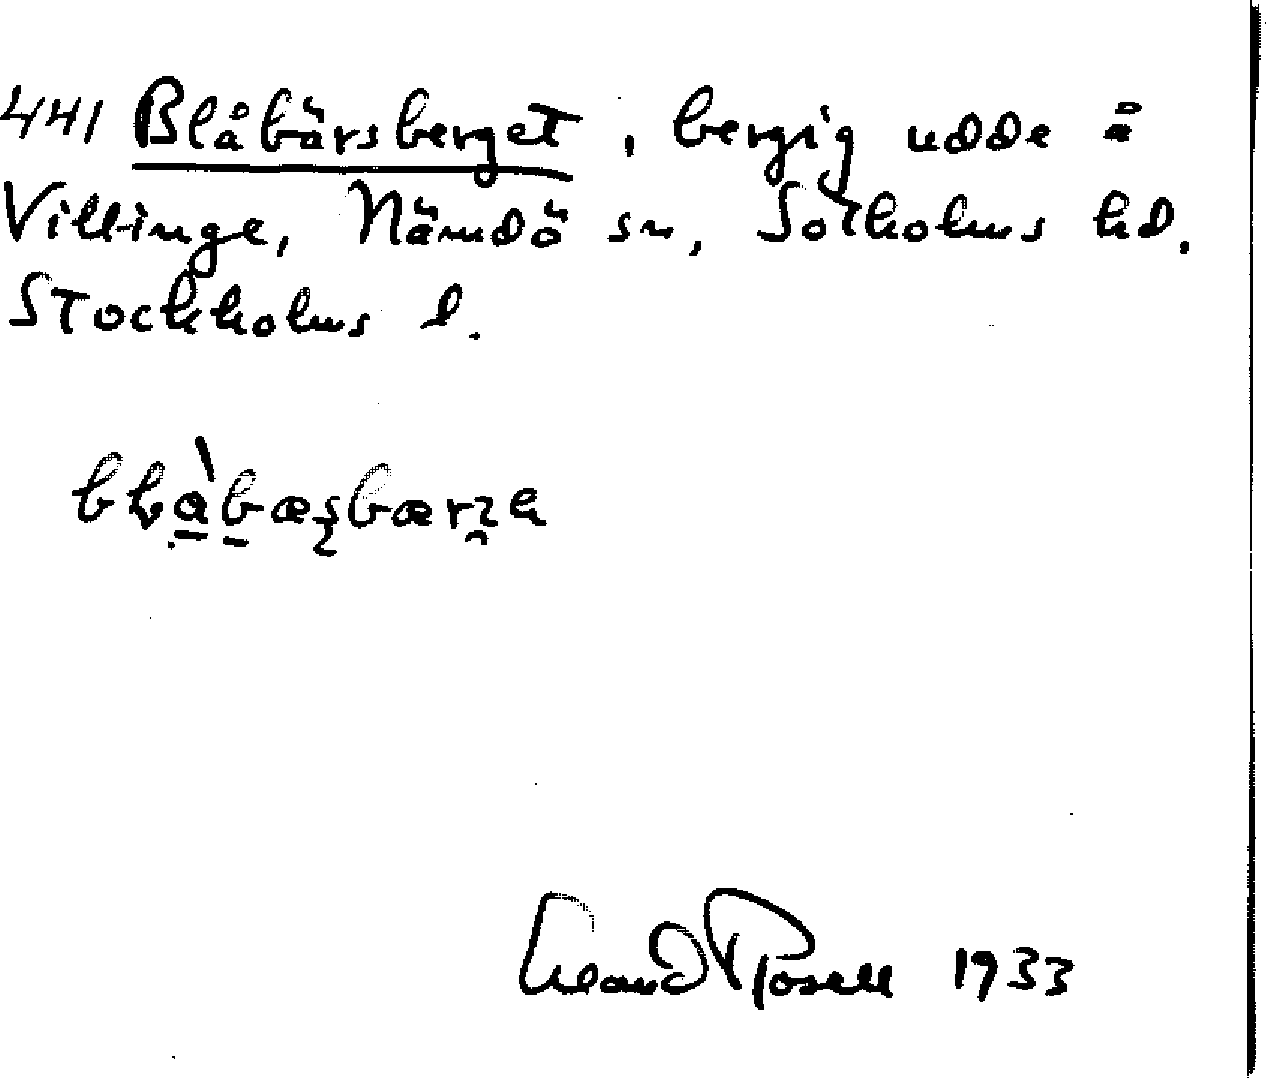 441 Blåbärsberget, bergig udde å
Villinge, Nämdö sn, Sotholms hd.
Stockholms l.
Erland Rosell 1933